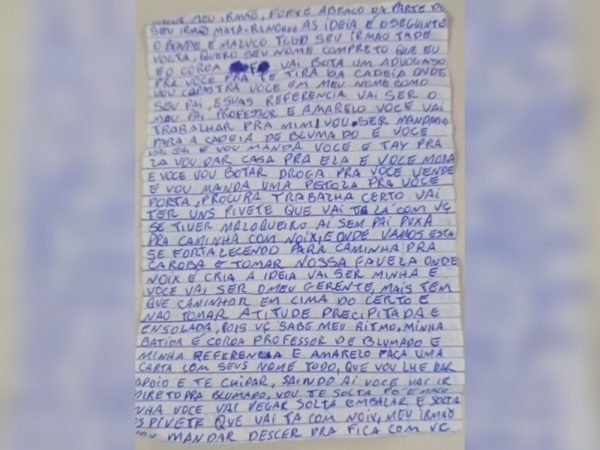 MEU IRMÃO, FORTE ABRAÇO DA PARTE DO
SEU IRMÃO MATA-RINO AS IDEIA E O SEGUINTE
O BONDE E MALUCO TLGD SEU IRMÃO TADE
VOLTA, QUERO SEU NOME COMPRETO QUE EU
EO COROA VAI BOTA UM ADVOGADO
PRA VOCE PRA TE TIRA DA CADEIA ONDE
VOU CADASTRA VOCE EM MEU NOME COMO
SOU PAI, ESUAS REFERENCIA VAI SER O
MEU PAI PROFESSOR E AMARELO VOCE VAI
TRABALHAR PRA MIM, VOU SER MANDADO
PARA A CADEIA DE BLUMADO E VOCE
VAI E VOU MANDA VOCE E TAY PRA
LA VOU DAR CASA PRA ELA E VOCE MORA
E VOCE VOU BOTAR DROGA PRA VOCE VENDE
E VOU MANDA UMA PISTOLA PRA VOCE
PORTA, PROCURA TRABALHA CERTO VAI
TER UNS PIVETE QUE VAI TA LA COM VC
SE TIVER MALOQUEIRO AI SEM PAI PUXA
PRA CAMINHA COM NOIX, E ONDE VAMOS ESTA
SE FORTALECENDO PARA CAMINHA PRA
CAROBA E TOMAR NOSSA FAVELA ONDE
NOIX E CRIA A IDEIA VAI SER MINHA E
VOCE VAI SER O MEU GERENTE, MAIS TEM
QUE CAMINHAR EM CIMA DO CERTO E
NÃO TOMAR ATITUDE PRECIPITADA E
ENSOLADA, POIS VC SABE MEU RITMO, MINHA
BATIDA E COROA PROFESSOR DE BLUMADO E
MINHA REFERENCIA E AMARELO FAÇA UMA
CARTA COM SEUS NOME TODO, QUE VOU LHE DAR
APOIO E TE CUIDAR, SAINDO AI VOCE VAI IR
DIRETO PRA BLUMADO, VOU TE SOLTA PO E MACO
NHA VOCE VAI PEGAR SOLTA EMBALAR E SOLTA
OS PIVETE QUE VAI TA COM NOIX, MEU IRMÃO
VOU MANDAR DESCER PRA FICA COM VC